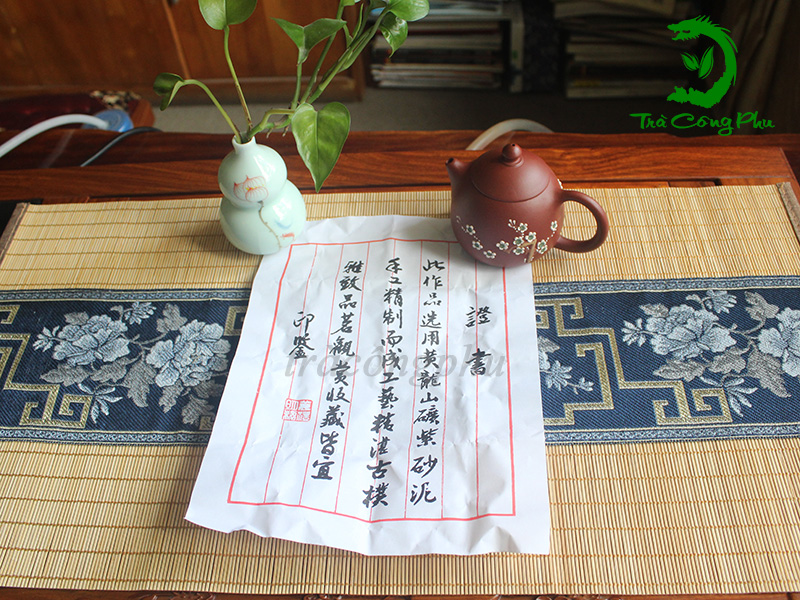 Trà Công Phu
證書
此作品选用黄龍山礦紫砂泥
手工精制而成工藝精湛古樸
雅致品茗觀赏收藏皆宜
印鑒
tràcôngphu